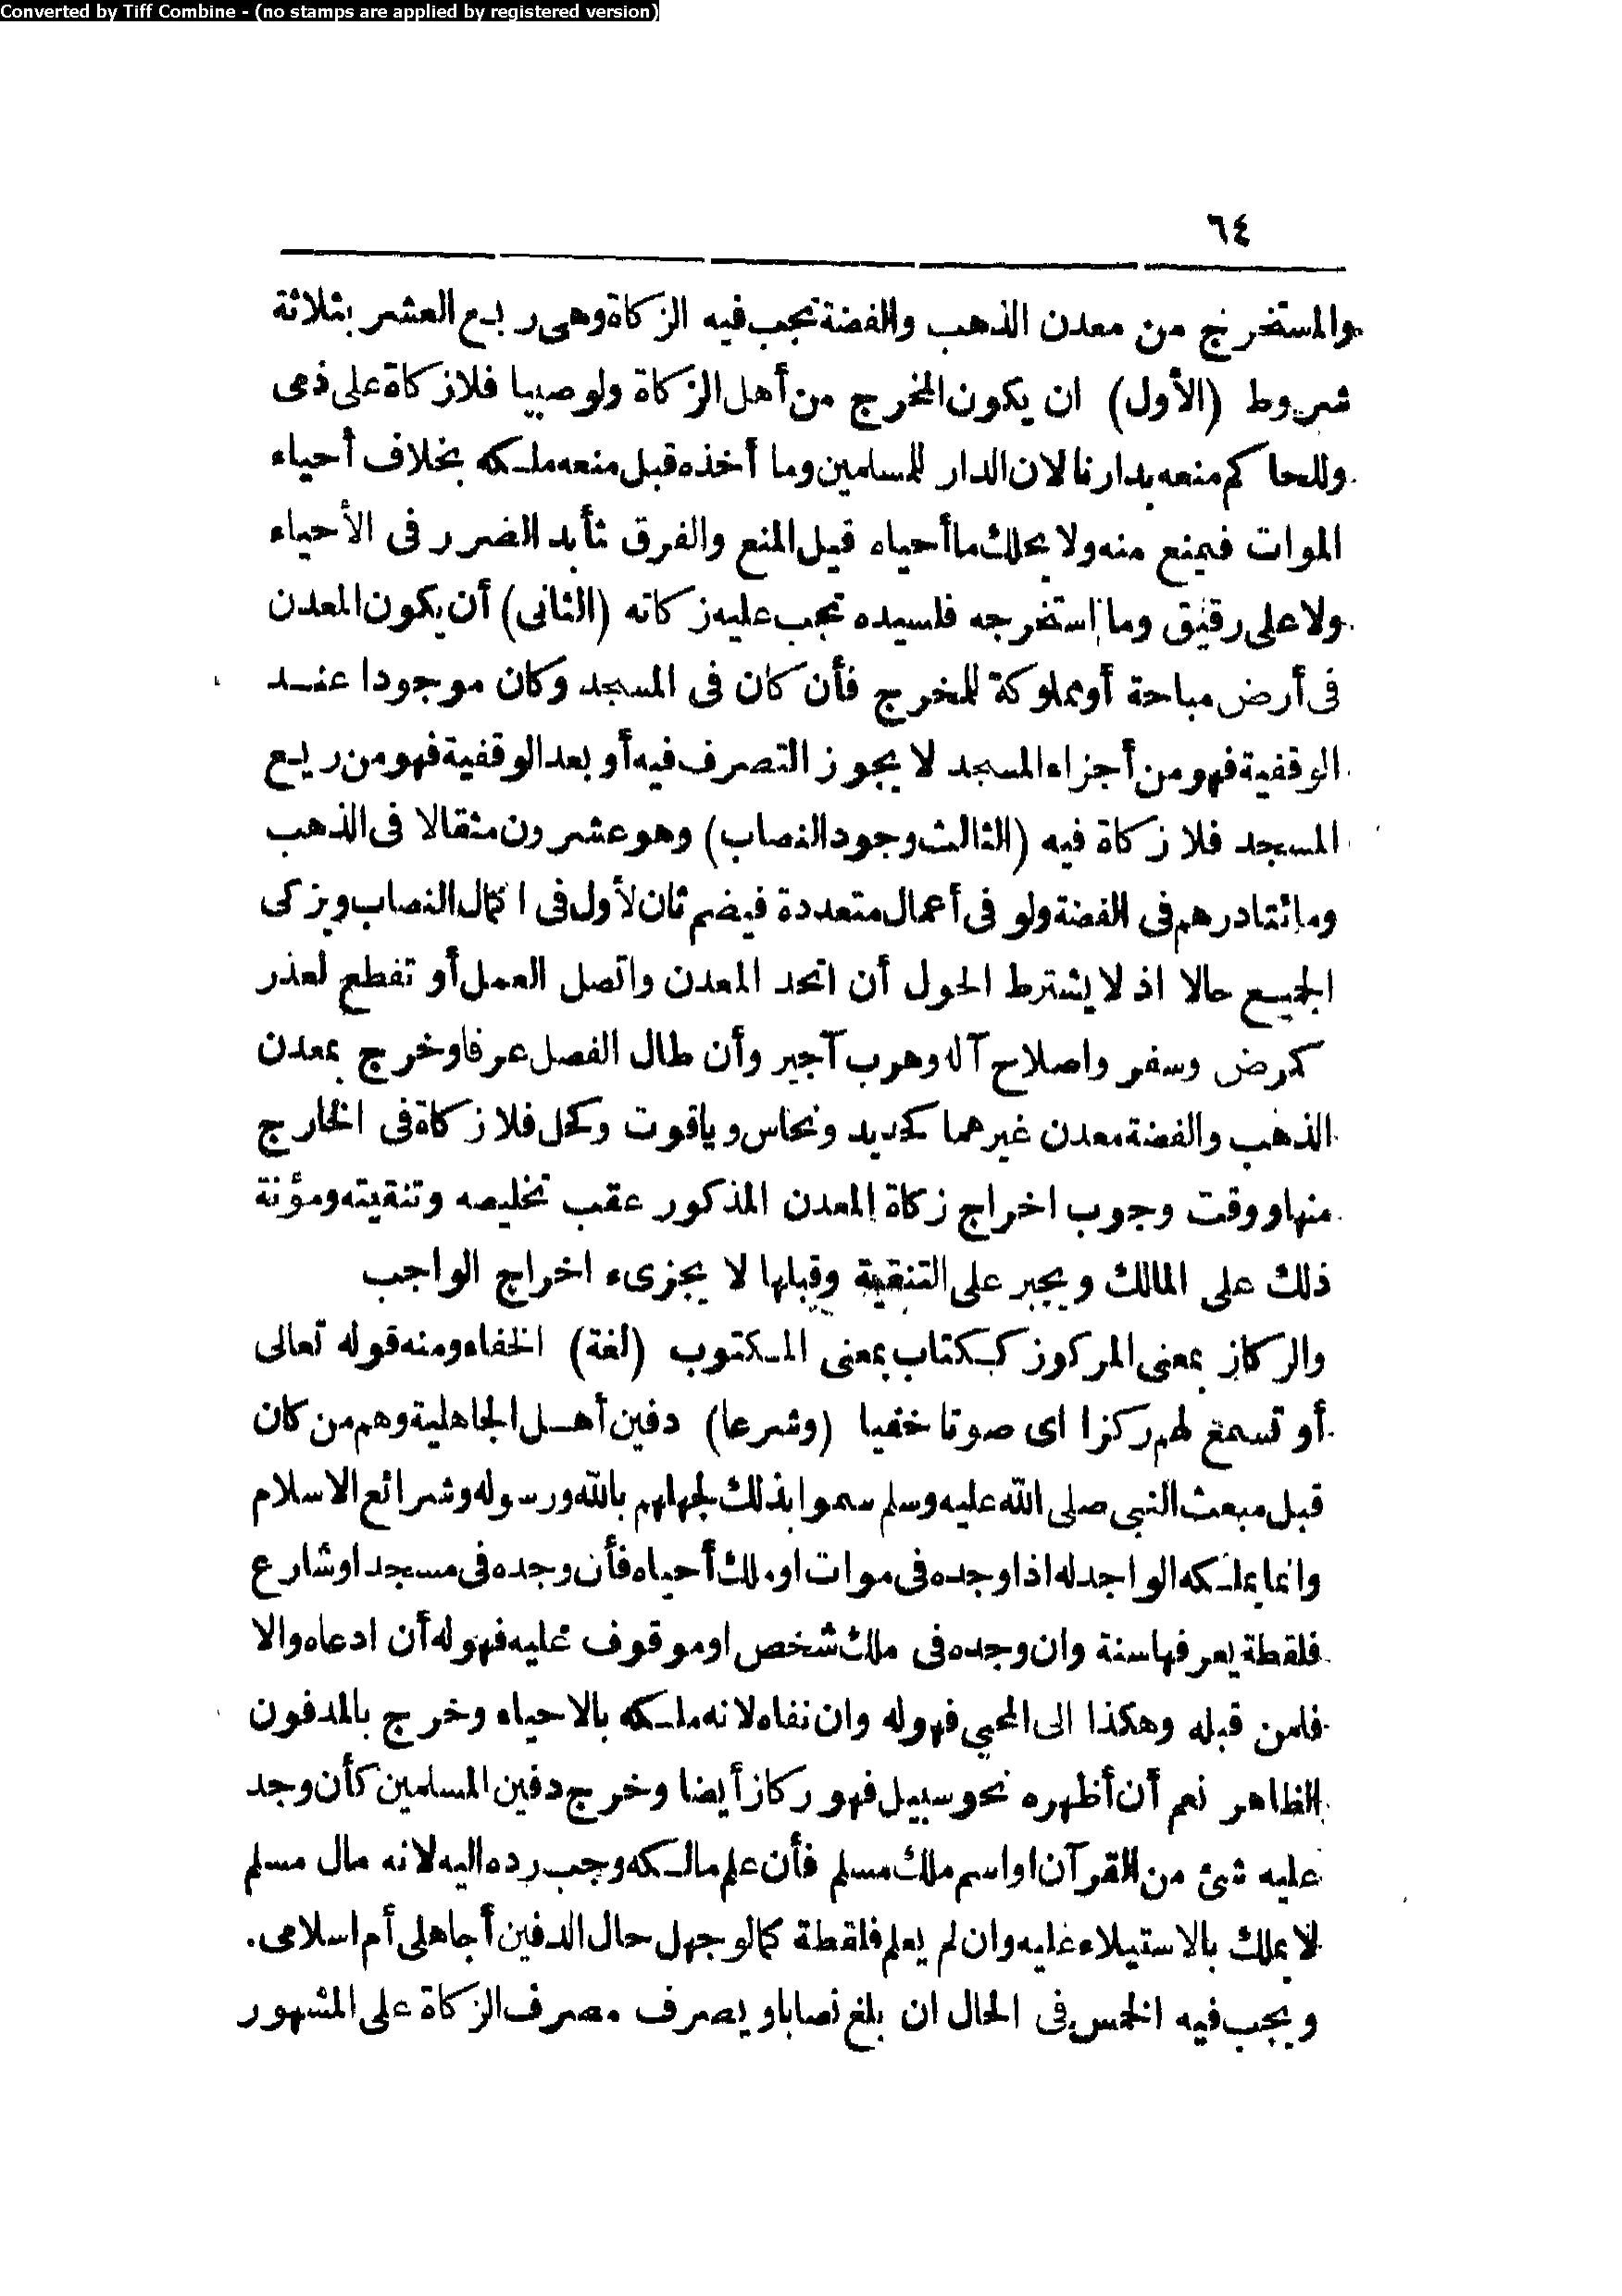 Converted by Tiff Combine - (no stamps are applied by registered version)
٦٤
والمستخرج من معدن الذهب والفضة تجب فيه الزكاة وهى ربع العشر بثلاثة
شروط (الأول) ان يكون المخرج من أهل الزكاة ولو صبيا فلا زكاة على ذمى
وللحاكم منعه بدارنا لان الدار للمسلمين وما أخذه قبل منعه ملكه بخلاف أحياء
الموات فيمنع منه ولا يملك ما أحياه قبل المنع والفرق تأبد الضرر فى الأحياء
ولا على رقيق وما استخرجه فلسيده تجب عليه زكاته (الثانى) أن يكون المعدن
فى أرض مباحة أو مملوكة للمخرج فأن كان فى المسجد وكان موجودا عند
الوقفية فهو من أجزاء المسجد لا يجوز التصرف فيه أو بعد الوقفية فهو من ريع
المسجد فلا زكاة فيه (الثالث وجود النصاب) وهو عشرون مثقالا فى الذهب
ومائتا درهم فى الفضة ولو فى أعمال متعددة فيضم ثان لأول فى اكمال النصاب ويزكى
الجميع حالا اذ لا يشترط الحول أن اتحد المعدن واتصل العمل أو تقطع لعذر
كمرض وسفر واصلاح آلة وهرب آجير وأن طال الفصل عرفا وخرج بمعدن
الذهب والفضة معدن غيرهما كحديد ونحاس وياقوت وكحل فلا زكاة فى الخارج
منها ووقت وجوب اخراج زكاة المعدن المذكور عقب تخليصه وتنقيته ومؤنة
ذلك على المالك ويجبر على التنقية وقبلها لا يجزىء اخراج الواجب
والركاز بمعنى المركوز ككتاب بمعنى المكتوب (لغة) الخفاء ومنه قوله تعالى
أو تسمع لهم ركزا اى صوتا خفيا (وشرعا) دفين أهل الجاهلية وهم من كان
قبل مبعث النبى صلى الله عليه وسلم سموا بذلك لجهلهم بالله ورسوله وشرائع الاسلام
وانما يملكه الواجد له اذا وجده فى موات او ملك أحياه فأن وجده فى مسجد او شارع
فلقطة يعرفها سنة وان وجده فى ملك شخص او موقوف عليه فهو له أن ادعاه والا
فلمن قبله وهكذا الى المحيي فهو له وان نفاه لانه ملكه بالاحياء وخرج بالمدفون
الظاهر نعم أن أظهره نحو سيل فهو ركاز أيضا وخرج دفين المسلمين كأن وجد
عليه شئ من القرآن او اسم ملك مسلم فأن علم مالكه وجب رده اليه لانه مال مسلم
لا يملك بالاستيلاء عليه وان لم يعلم فلقطة كما لو جهل حال الدفين أجاهلى أم اسلامى.
ويجب فيه الخمس فى الحال ان بلغ نصابا ويصرف مصرف الزكاة على المشهور